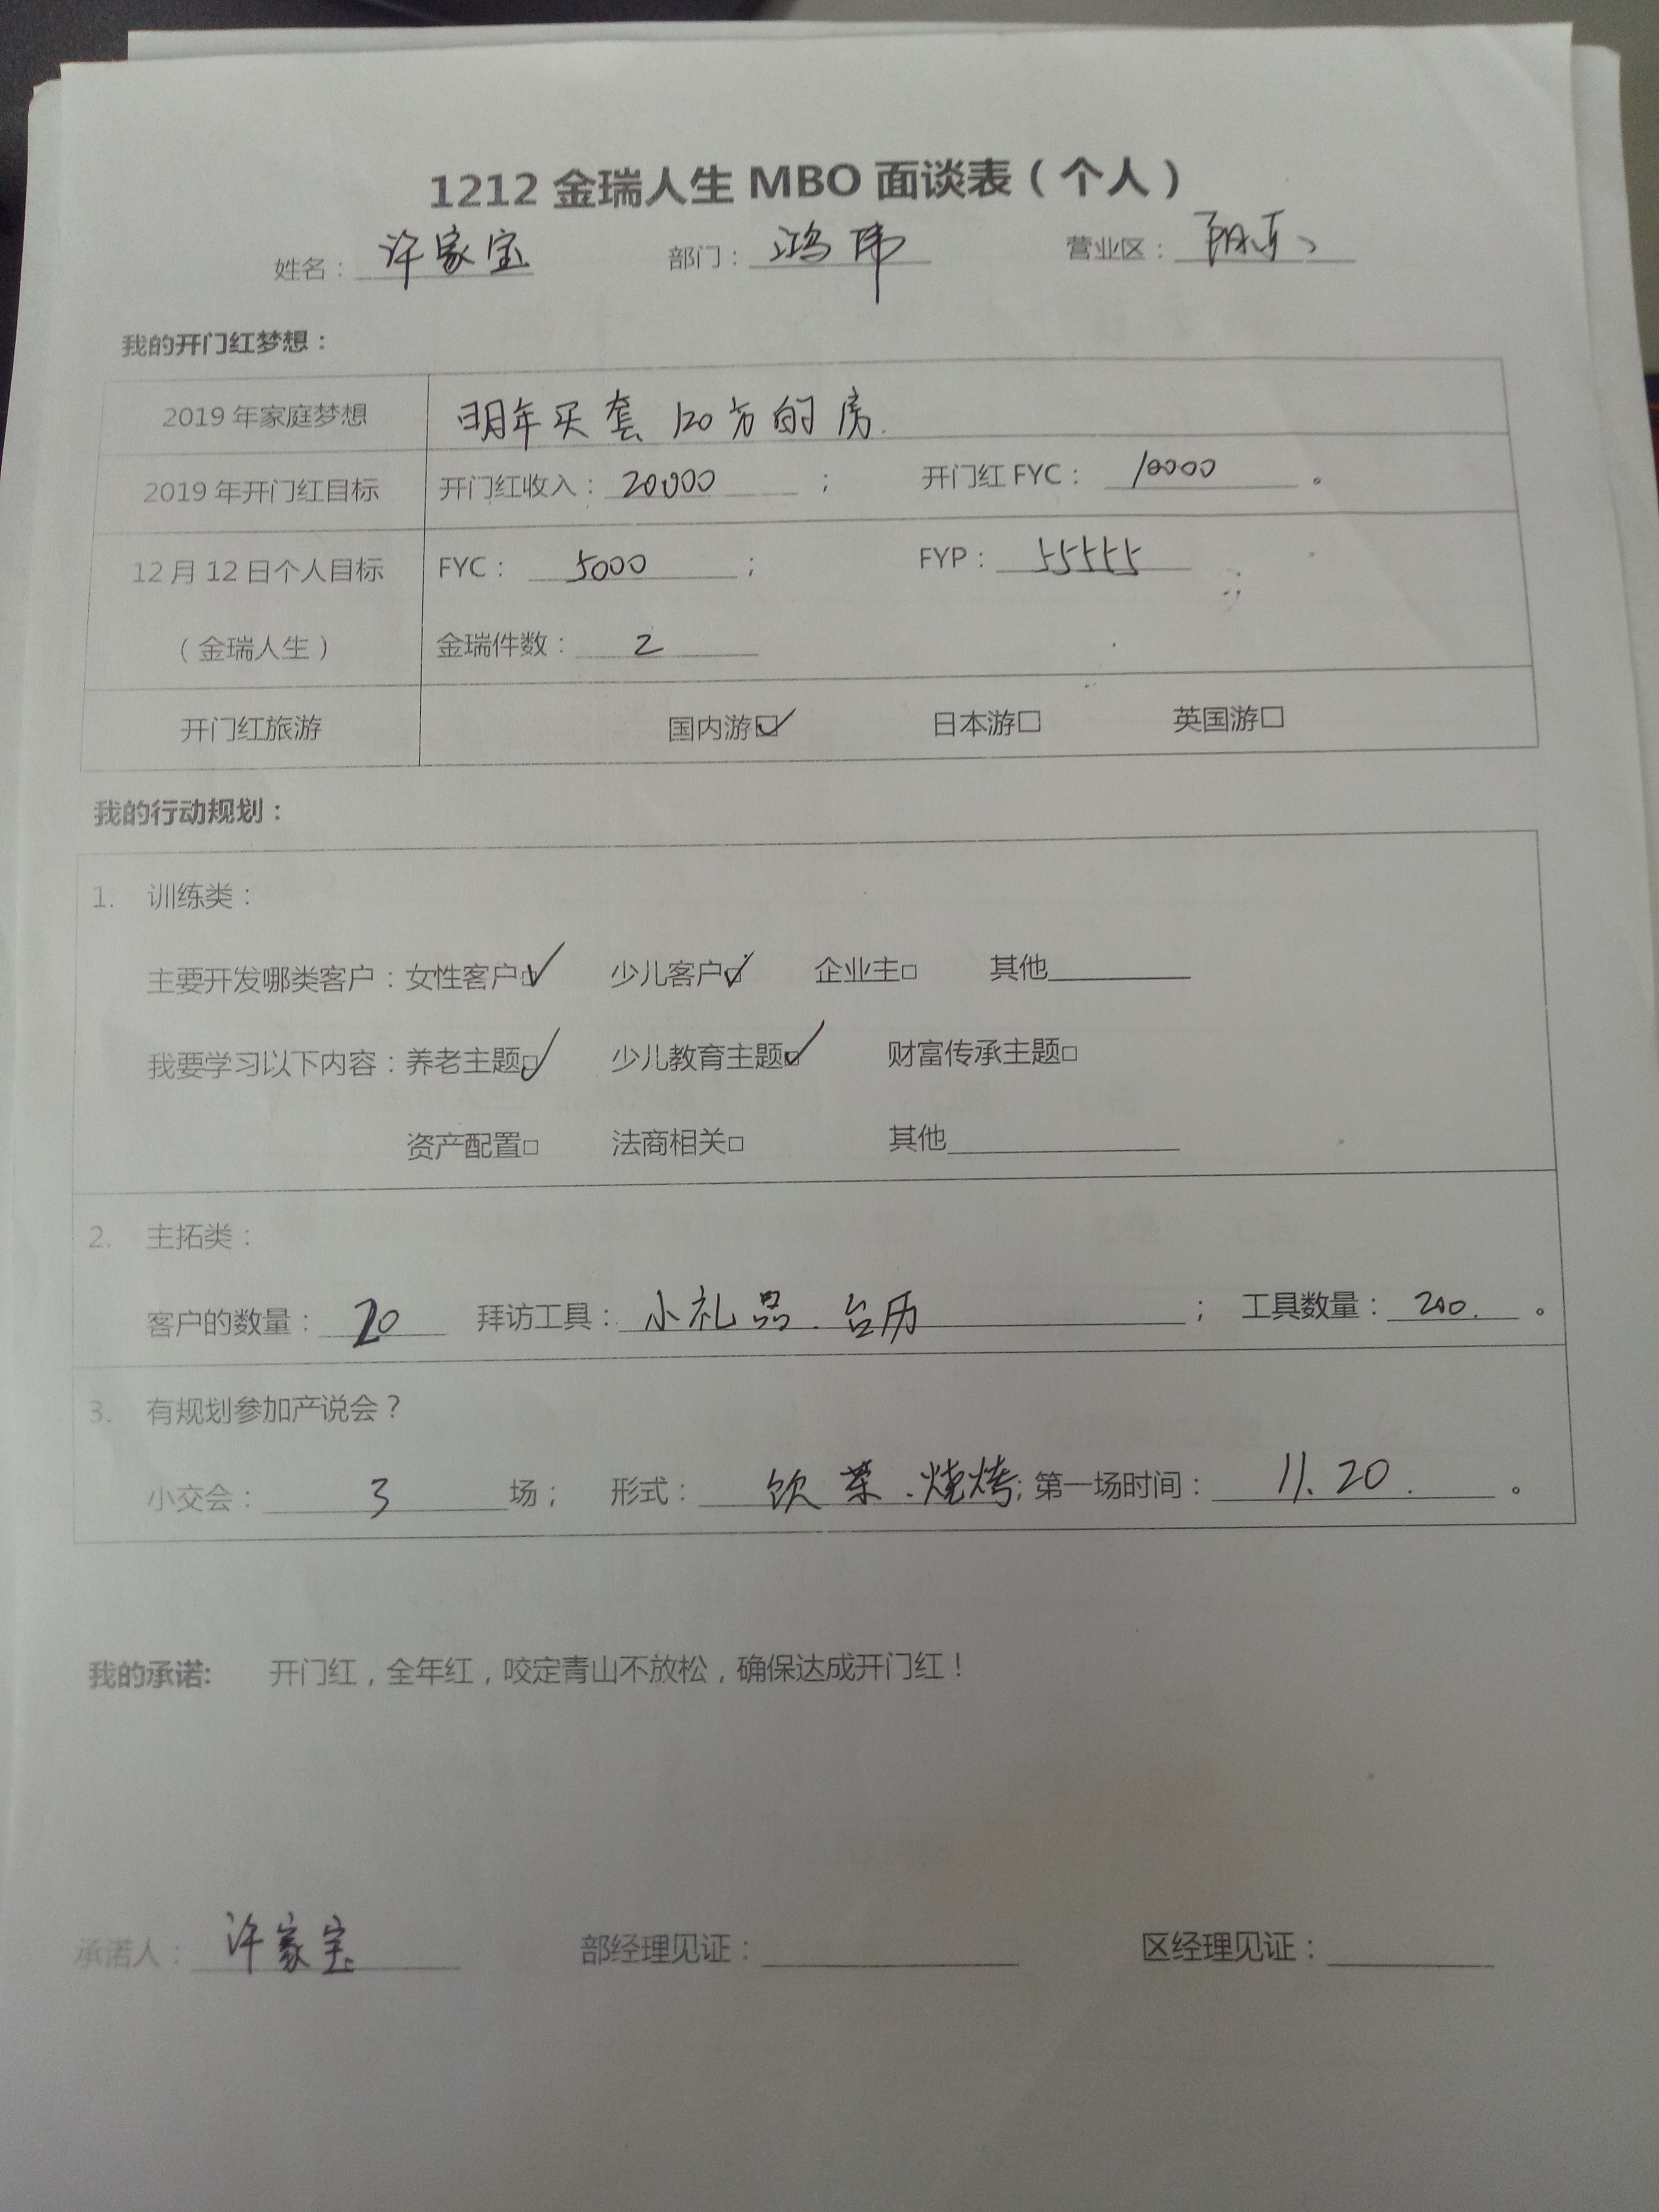 1212 金瑞人生 MBO 面谈表（个人）
姓名：许家宝 部门：鸿伟 营业区：阳东
我的开门红梦想：
2019 年家庭梦想 明年买套 120方的房.
2019 年开门红目标 开门红收入：20000 ； 开门红 FYC：10000 。
12 月 12 日个人目标 FYC：5000 ； FYP：55555
（金瑞人生） 金瑞件数：2
开门红旅游 国内游☑ 日本游□ 英国游□
我的行动规划：
1. 训练类：
主要开发哪类客户：女性客户☑ 少儿客户☑ 企业主□ 其他
我要学习以下内容：养老主题☑ 少儿教育主题☑ 财富传承主题□
资产配置□ 法商相关□ 其他
2. 主拓类：
客户的数量：20 拜访工具：小礼品.台历 ； 工具数量：200. 。
3. 有规划参加产说会？
小交会：3 场； 形式：饮茶.烧烤；第一场时间：11.20. 。
我的承诺: 开门红，全年红，咬定青山不放松，确保达成开门红！
承诺人：许家宝 部经理见证： 区经理见证：